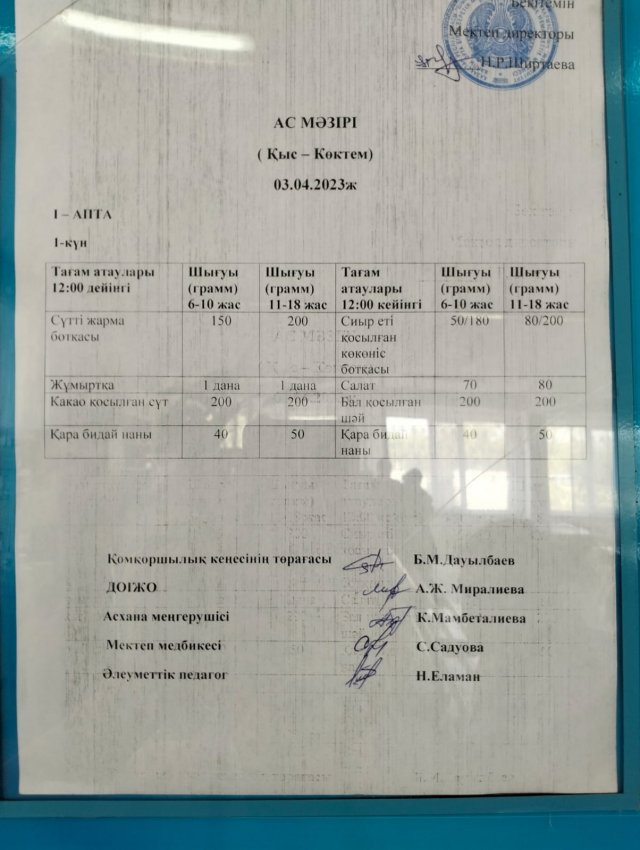 Бекітемін
Мектеп директоры
Н.Р.Ширтаева
АС МӘЗІРІ
( Қыс – Көктем)
03.04.2023ж
I – АПТА
1-күн
Тағам атаулары 12:00 дейінгі | Шығуы (грамм) 6-10 жас | Шығуы (грамм) 11-18 жас | Тағам атаулары 12:00 кейінгі | Шығуы (грамм) 6-10 жас | Шығуы (грамм) 11-18 жас
Сүтті жарма ботқасы | 150 | 200 | Сиыр еті қосылған көкөніс ботқасы | 50/180 | 80/200
Жұмыртқа | 1 дана | 1 дана | Салат | 70 | 80
Какао қосылған сүт | 200 | 200 | Бал қосылған шәй | 200 | 200
Қара бидай наны | 40 | 50 | Қара бидай наны | 40 | 50
Қомқоршылық кеңесінің төрағасы Б.М.Дауылбаев
ДОІЖО А.Ж. Миралиева
Асхана меңгерушісі К.Мамбеталиева
Мектеп медбикесі С.Садуова
Әлеуметтік педагог Н.Еламан